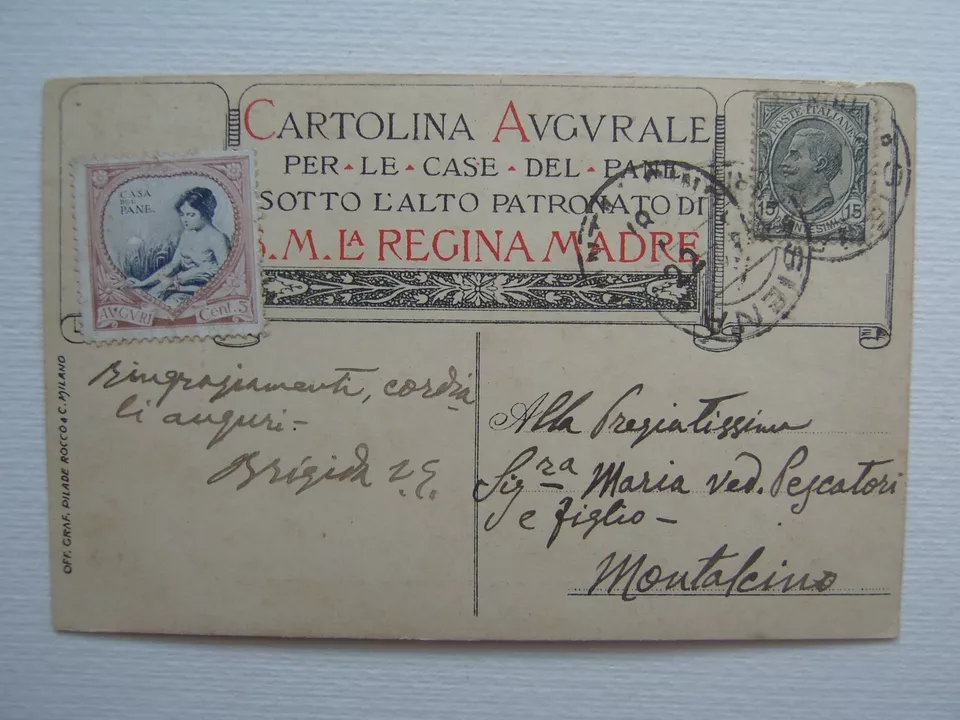 CARTOLINA AVGVRALE
PER LE CASE DEL PANE
SOTTO L'ALTO PATRONATO DI
S.M. LA REGINA MADRE
CASA
DEL
PANE
AVGVRI Cent. 5
POSTE ITALIANE
15 15
CENTESIMI
SIENA
OFF. GRAF. PILADE ROCCO & C. MILANO
Ringraziamenti, cordia
li auguri -
Brigida
Alla Pregiatissima
Sig.ra Maria ved. Pescatori
e figlio -
Montalcino